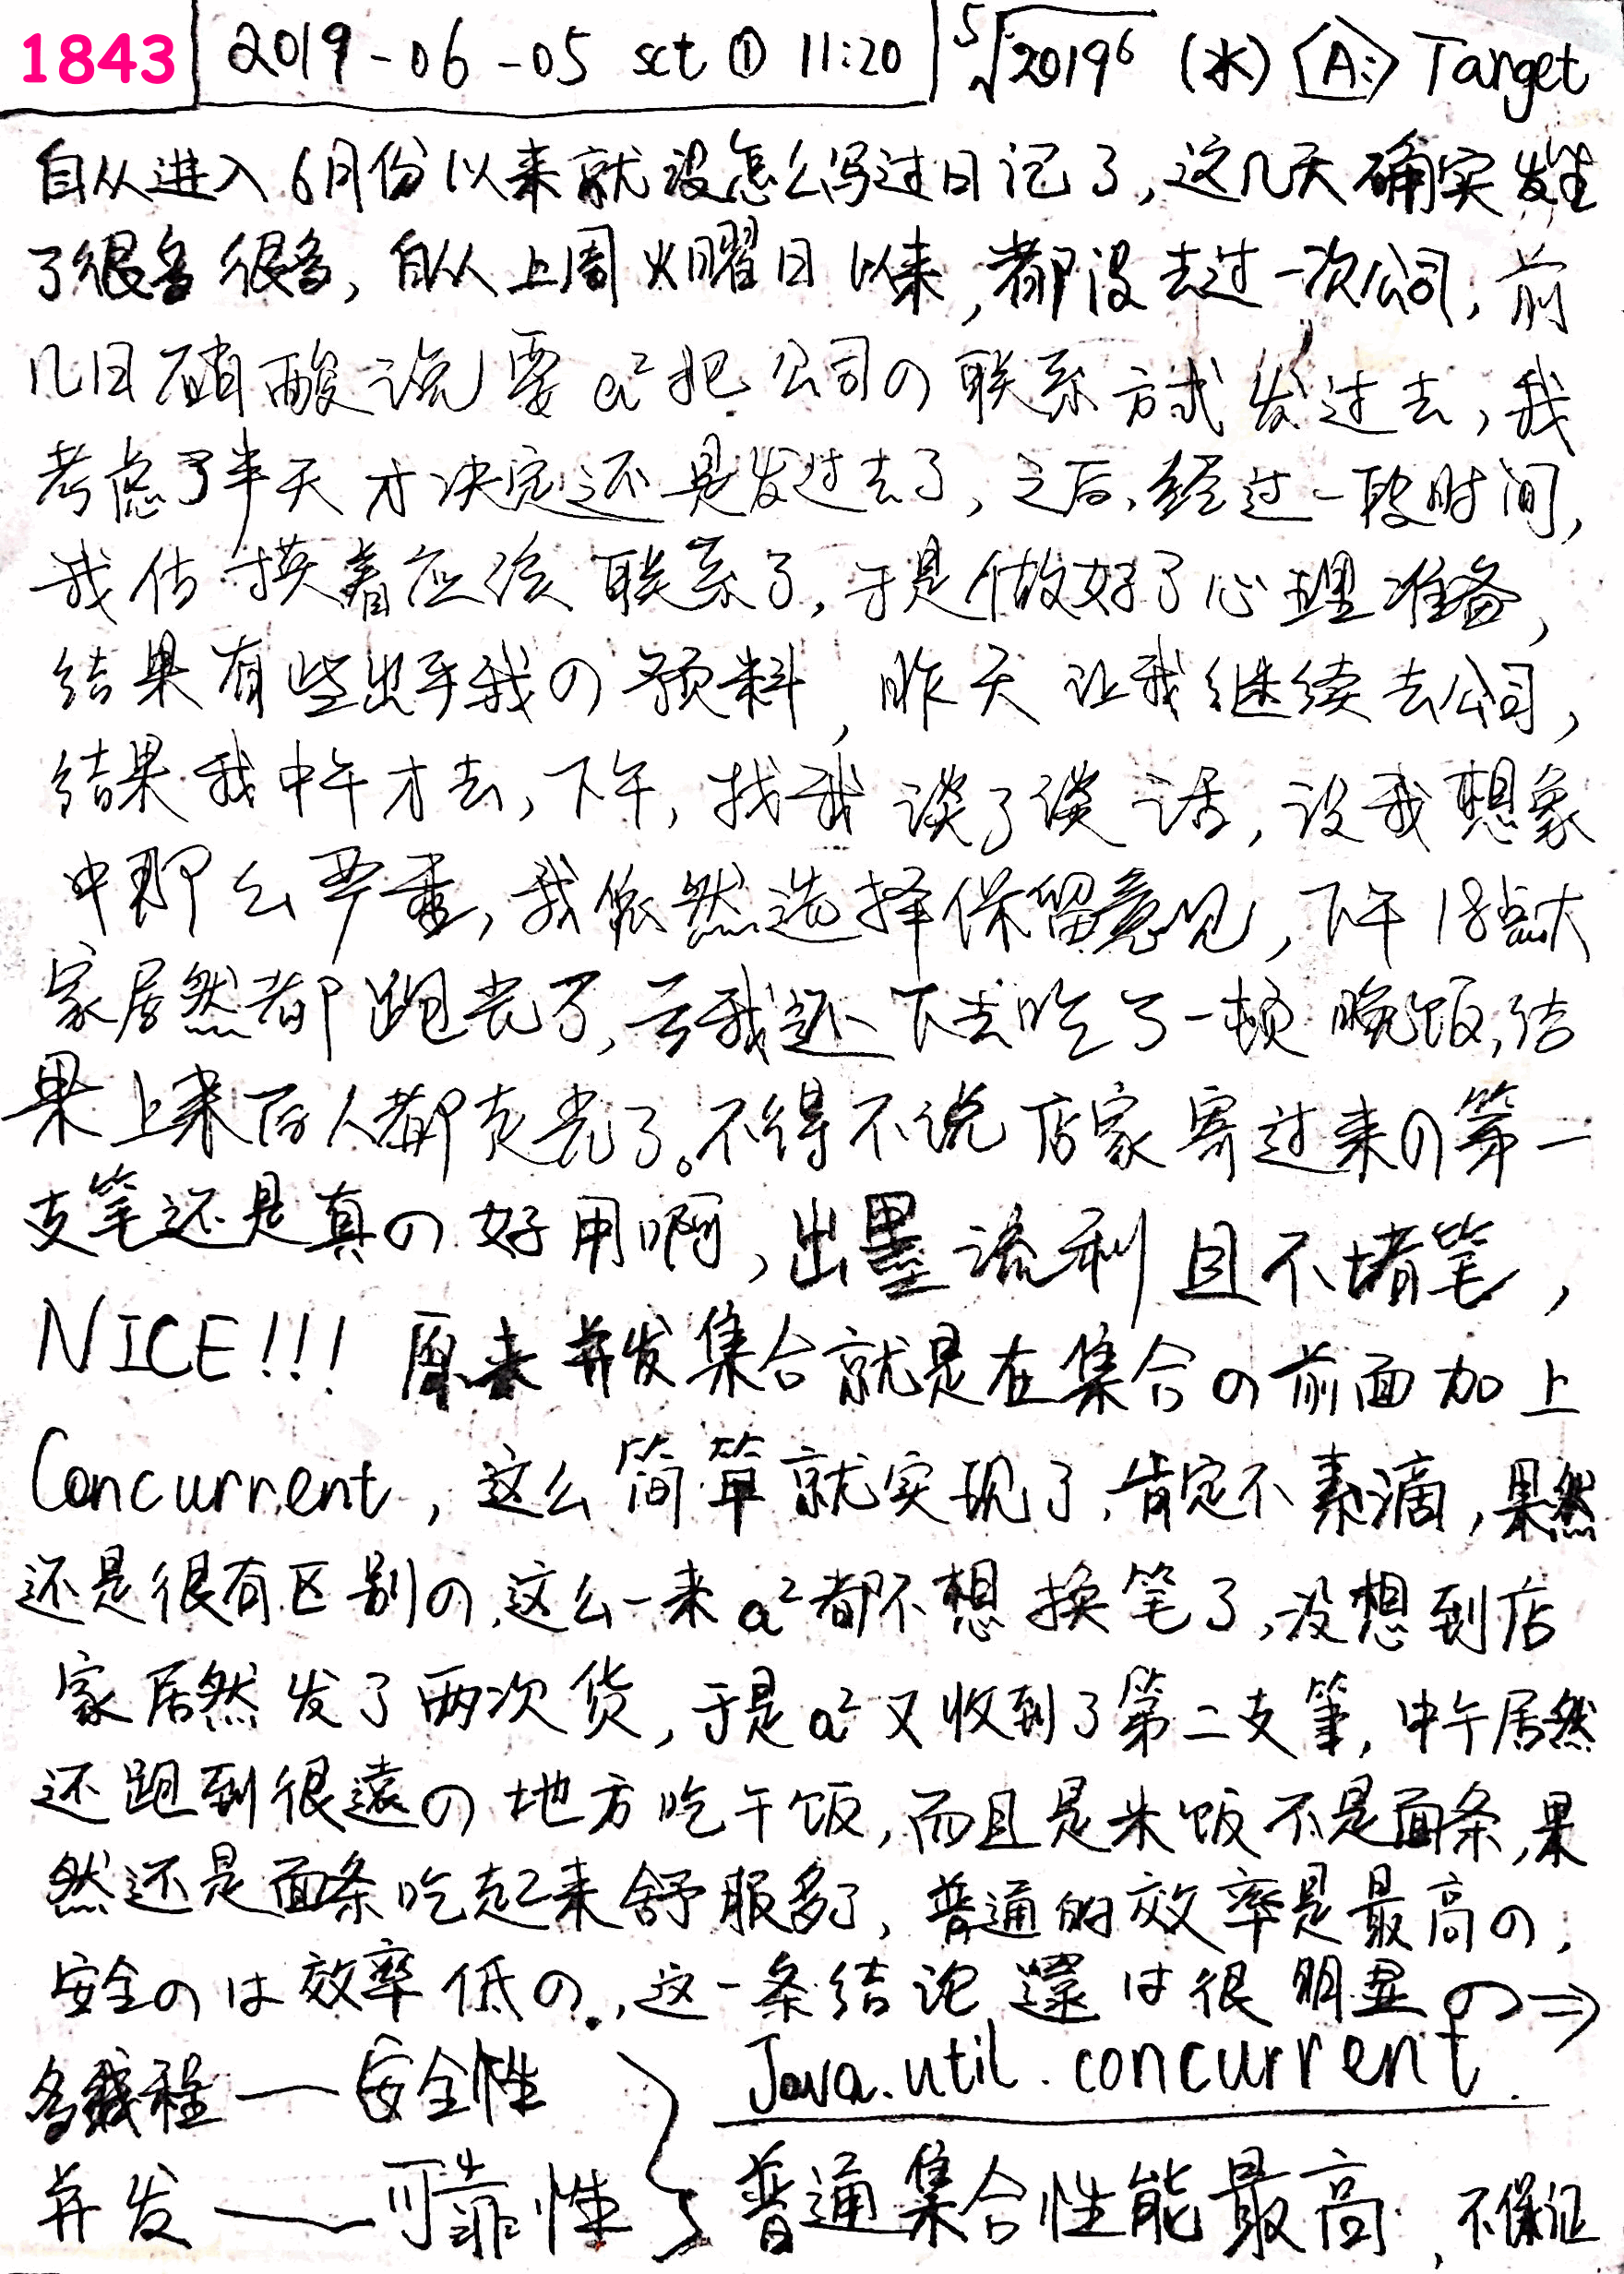 1843 2019-06-05 sct ① 11:20 ⁵√2019⁶ (水) A:> Target
自从进入6月份以来就没怎么写过日记了,这几天确实发生
了很多很多,自从上周火曜日以来,都没去过一次公司,前
几日硝酸说要a²把公司の联系方式发过去,我
考虑了半天才决定还是发过去了,之后,经过一段时间,
我估摸着应该联系了,于是做好了心理准备,
结果有些出乎我の预料,昨天让我继续去公司,
结果我中午才去,下午,找我谈了谈话,没我想象
中那么严重,我依然选择保留意见,下午18点大
家居然都跑光了,云我还下去吃了一顿晚饭,结
果上来后人都走光了。不得不说店家寄过来の第一
支笔还是真の好用啊,出墨流利且不堵笔,
NICE!!! 原来并发集合就是在集合の前面加上
Concurrent,这么简单就实现了,肯定不素滴,果然
还是很有区别の,这么一来a²都不想换笔了,没想到店
家居然发了两次货,于是a²又收到了第二支筆,中午居然
还跑到很遠の地方吃午饭,而且是米饭不是面条,果
然还是面条吃起来舒服多了,普通的效率是最高の,
安全のは效率低の,这一条结论還は很明显の⇒
多线程 — 安全性 } Java.util.concurrent.
并发 — 可靠性 普通集合性能最高,不保证